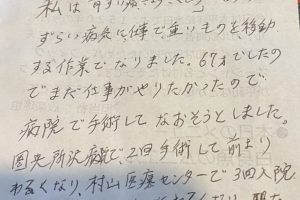 私は
ずらい病気に仕事で重いものを移動
する作業でなりました。67才でしたの
でまだ仕事がやりたかったので
病院で手術してなおそうとしました。
圏央所沢病院で、2回手術して前より
わるくなり、村山医療センターで3回入院